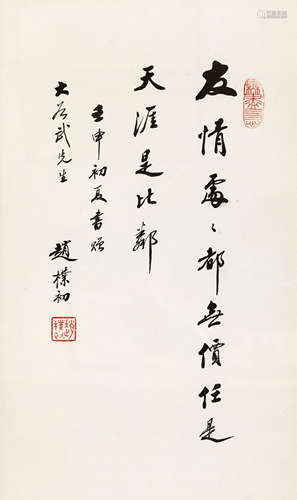 友情處々都無價任是
天涯是比鄰
壬申初夏書贈
大谷武先生
趙樸初